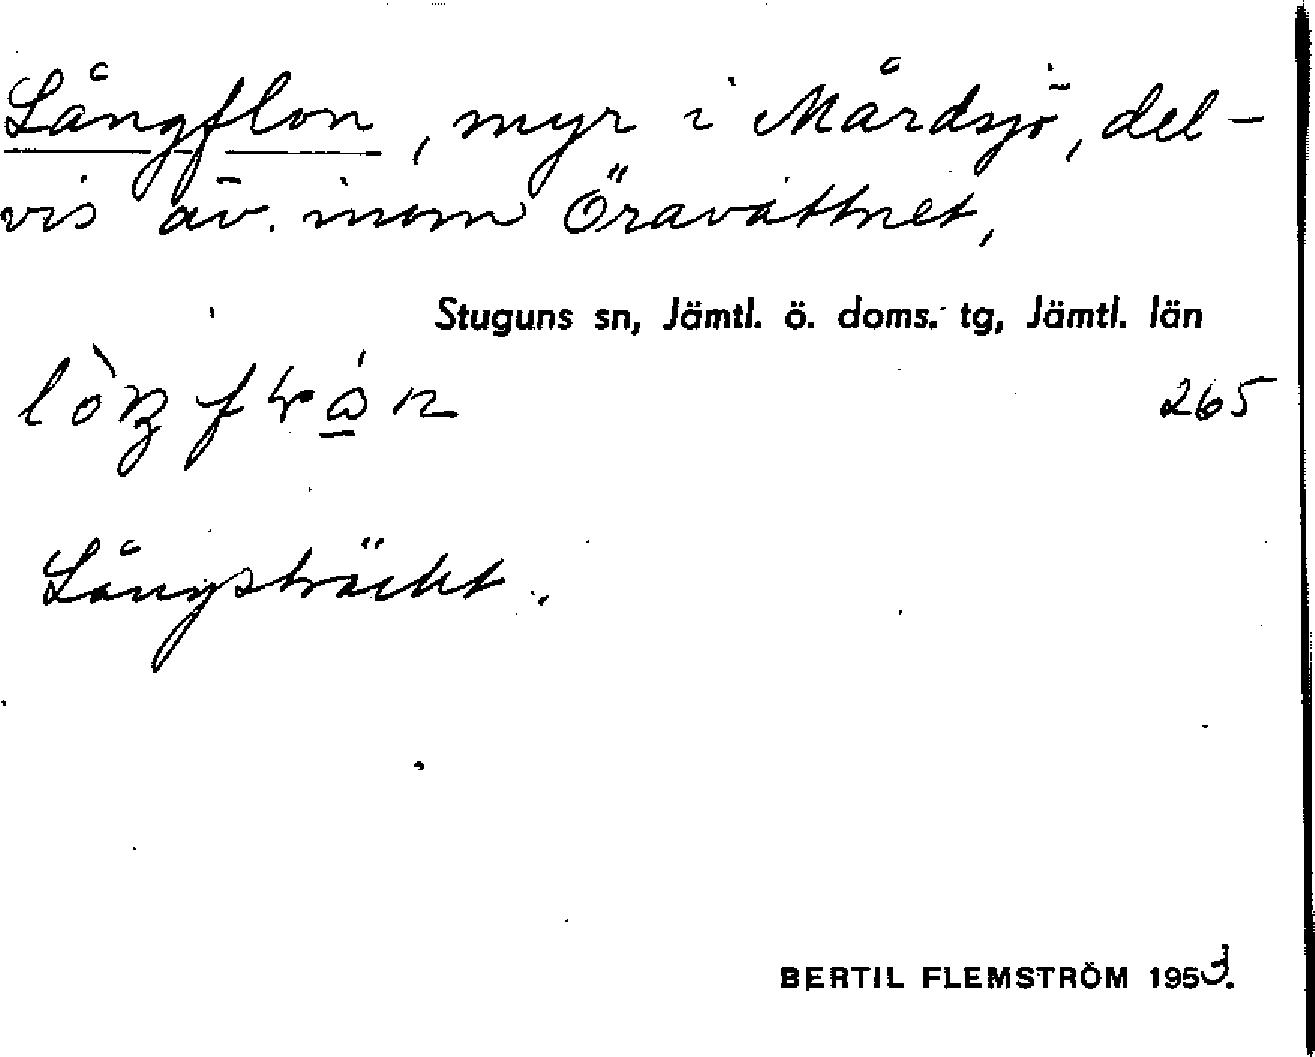 Långflon, myr i Mårdsjö, del-
vis äv. inom Öravattnet,
Stuguns sn, Jämtl. ö. doms. tg, Jämtl. län
265
Långsträckt.
BERTIL FLEMSTRÖM 1953.